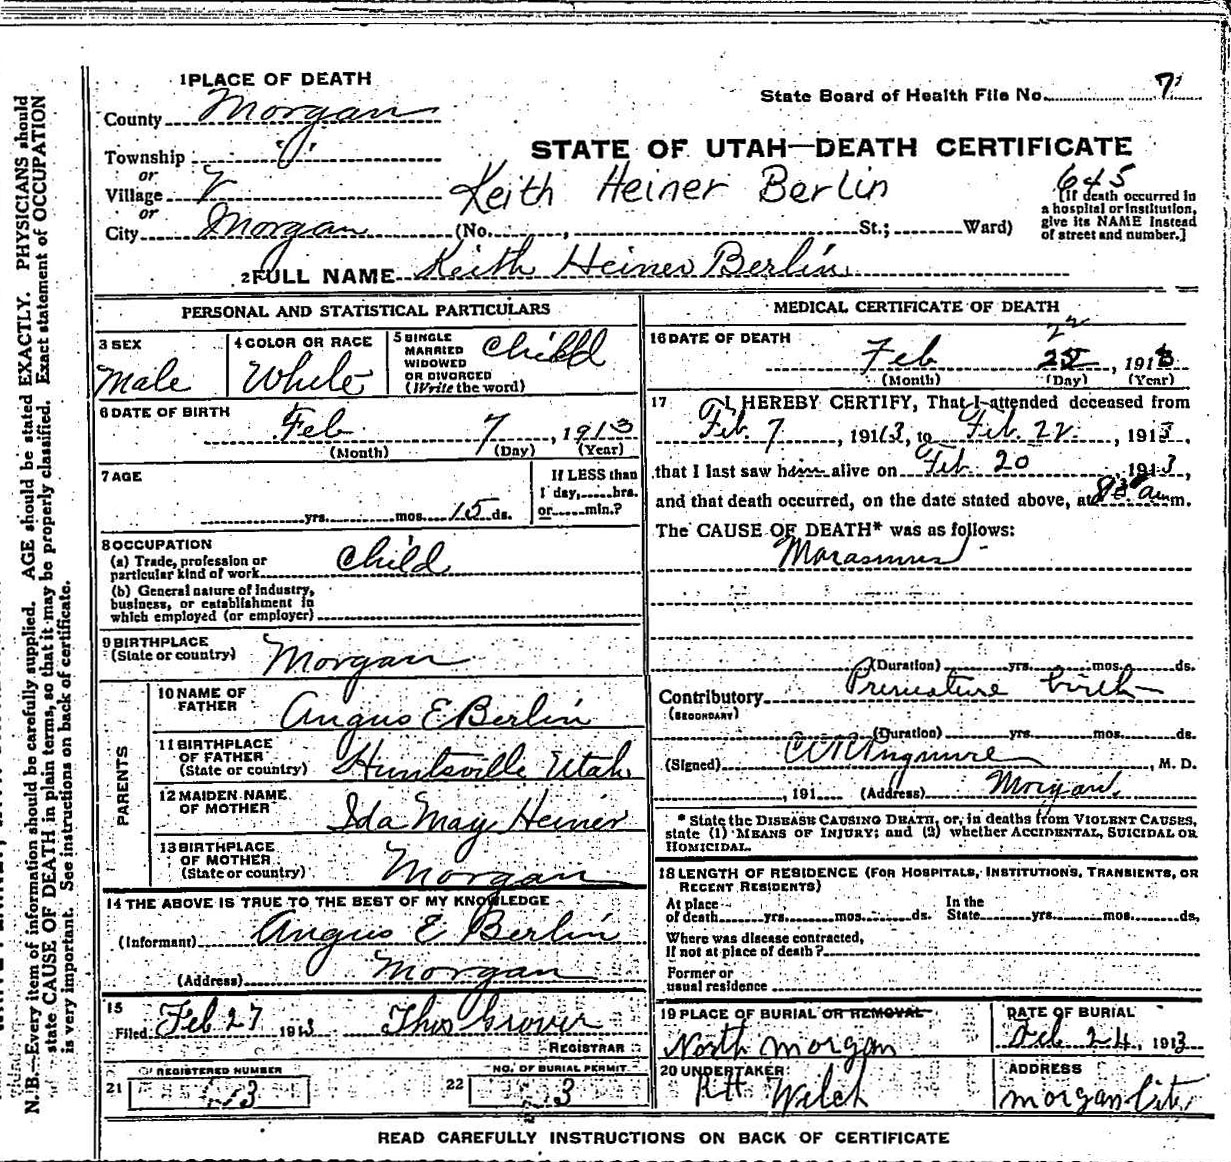 1 PLACE OF DEATH
State Board of Health File No. 7
County Morgan
STATE OF UTAH—DEATH CERTIFICATE
Township
or
Village
or
Keith Heiner Berlin
645
[If death occurred in a hospital or institution, give its NAME instead of street and number.]
City Morgan (No. , St.; Ward)
2 FULL NAME Keith Heiner Berlin
PERSONAL AND STATISTICAL PARTICULARS
3 SEX Male
4 COLOR OR RACE White
5 SINGLE MARRIED WIDOWED OR DIVORCED (Write the word) Child
6 DATE OF BIRTH Feb 7, 1913
(Month) (Day) (Year)
7 AGE yrs. mos. 15 ds.
If LESS than 1 day, hrs. or min.?
8 OCCUPATION
(a) Trade, profession or particular kind of work Child
(b) General nature of industry, business, or establishment in which employed (or employer)
9 BIRTHPLACE (State or country) Morgan
PARENTS
10 NAME OF FATHER Angus E Berlin
11 BIRTHPLACE OF FATHER (State or country) Huntsville Utah
12 MAIDEN NAME OF MOTHER Ida May Heiner
13 BIRTHPLACE OF MOTHER (State or country) Morgan
14 THE ABOVE IS TRUE TO THE BEST OF MY KNOWLEDGE
(Informant) Angus E Berlin
(Address) Morgan
15 Filed Feb 27 1913 Thos Grover
REGISTRAR
21 REGISTERED NUMBER 3
22 NO. OF BURIAL PERMIT 3
MEDICAL CERTIFICATE OF DEATH
16 DATE OF DEATH Feb 22, 1913
(Month) (Day) (Year)
17 I HEREBY CERTIFY, That I attended deceased from
Feb. 7, 1913, to Feb. 22, 1913,
that I last saw him alive on Feb 20, 1913,
and that death occurred, on the date stated above, at 830 am m.
The CAUSE OF DEATH* was as follows:
Marasmus
(Duration) yrs. mos. ds.
Contributory Premature birth
(SECONDARY)
(Duration) yrs. mos. ds.
(Signed) , M. D.
, 191 (Address) Morgan
* State the DISEASE CAUSING DEATH, or, in deaths from VIOLENT CAUSES, state (1) MEANS OF INJURY; and (2) whether ACCIDENTAL, SUICIDAL OR HOMICIDAL.
18 LENGTH OF RESIDENCE (FOR HOSPITALS, INSTITUTIONS, TRANSIENTS, OR RECENT RESIDENTS)
At place of death yrs. mos. ds. In the State yrs. mos. ds.
Where was disease contracted, if not at place of death?
Former or usual residence
19 PLACE OF BURIAL OR REMOVAL North Morgan
DATE OF BURIAL Feb 24, 1913
20 UNDERTAKER R H Welch
ADDRESS Morgan City
READ CAREFULLY INSTRUCTIONS ON BACK OF CERTIFICATE
N. B.—Every item of information should be carefully supplied. AGE should be stated EXACTLY. PHYSICIANS should
state CAUSE OF DEATH in plain terms, so that it may be properly classified. Exact statement of OCCUPATION
is very important. See instructions on back of certificate.